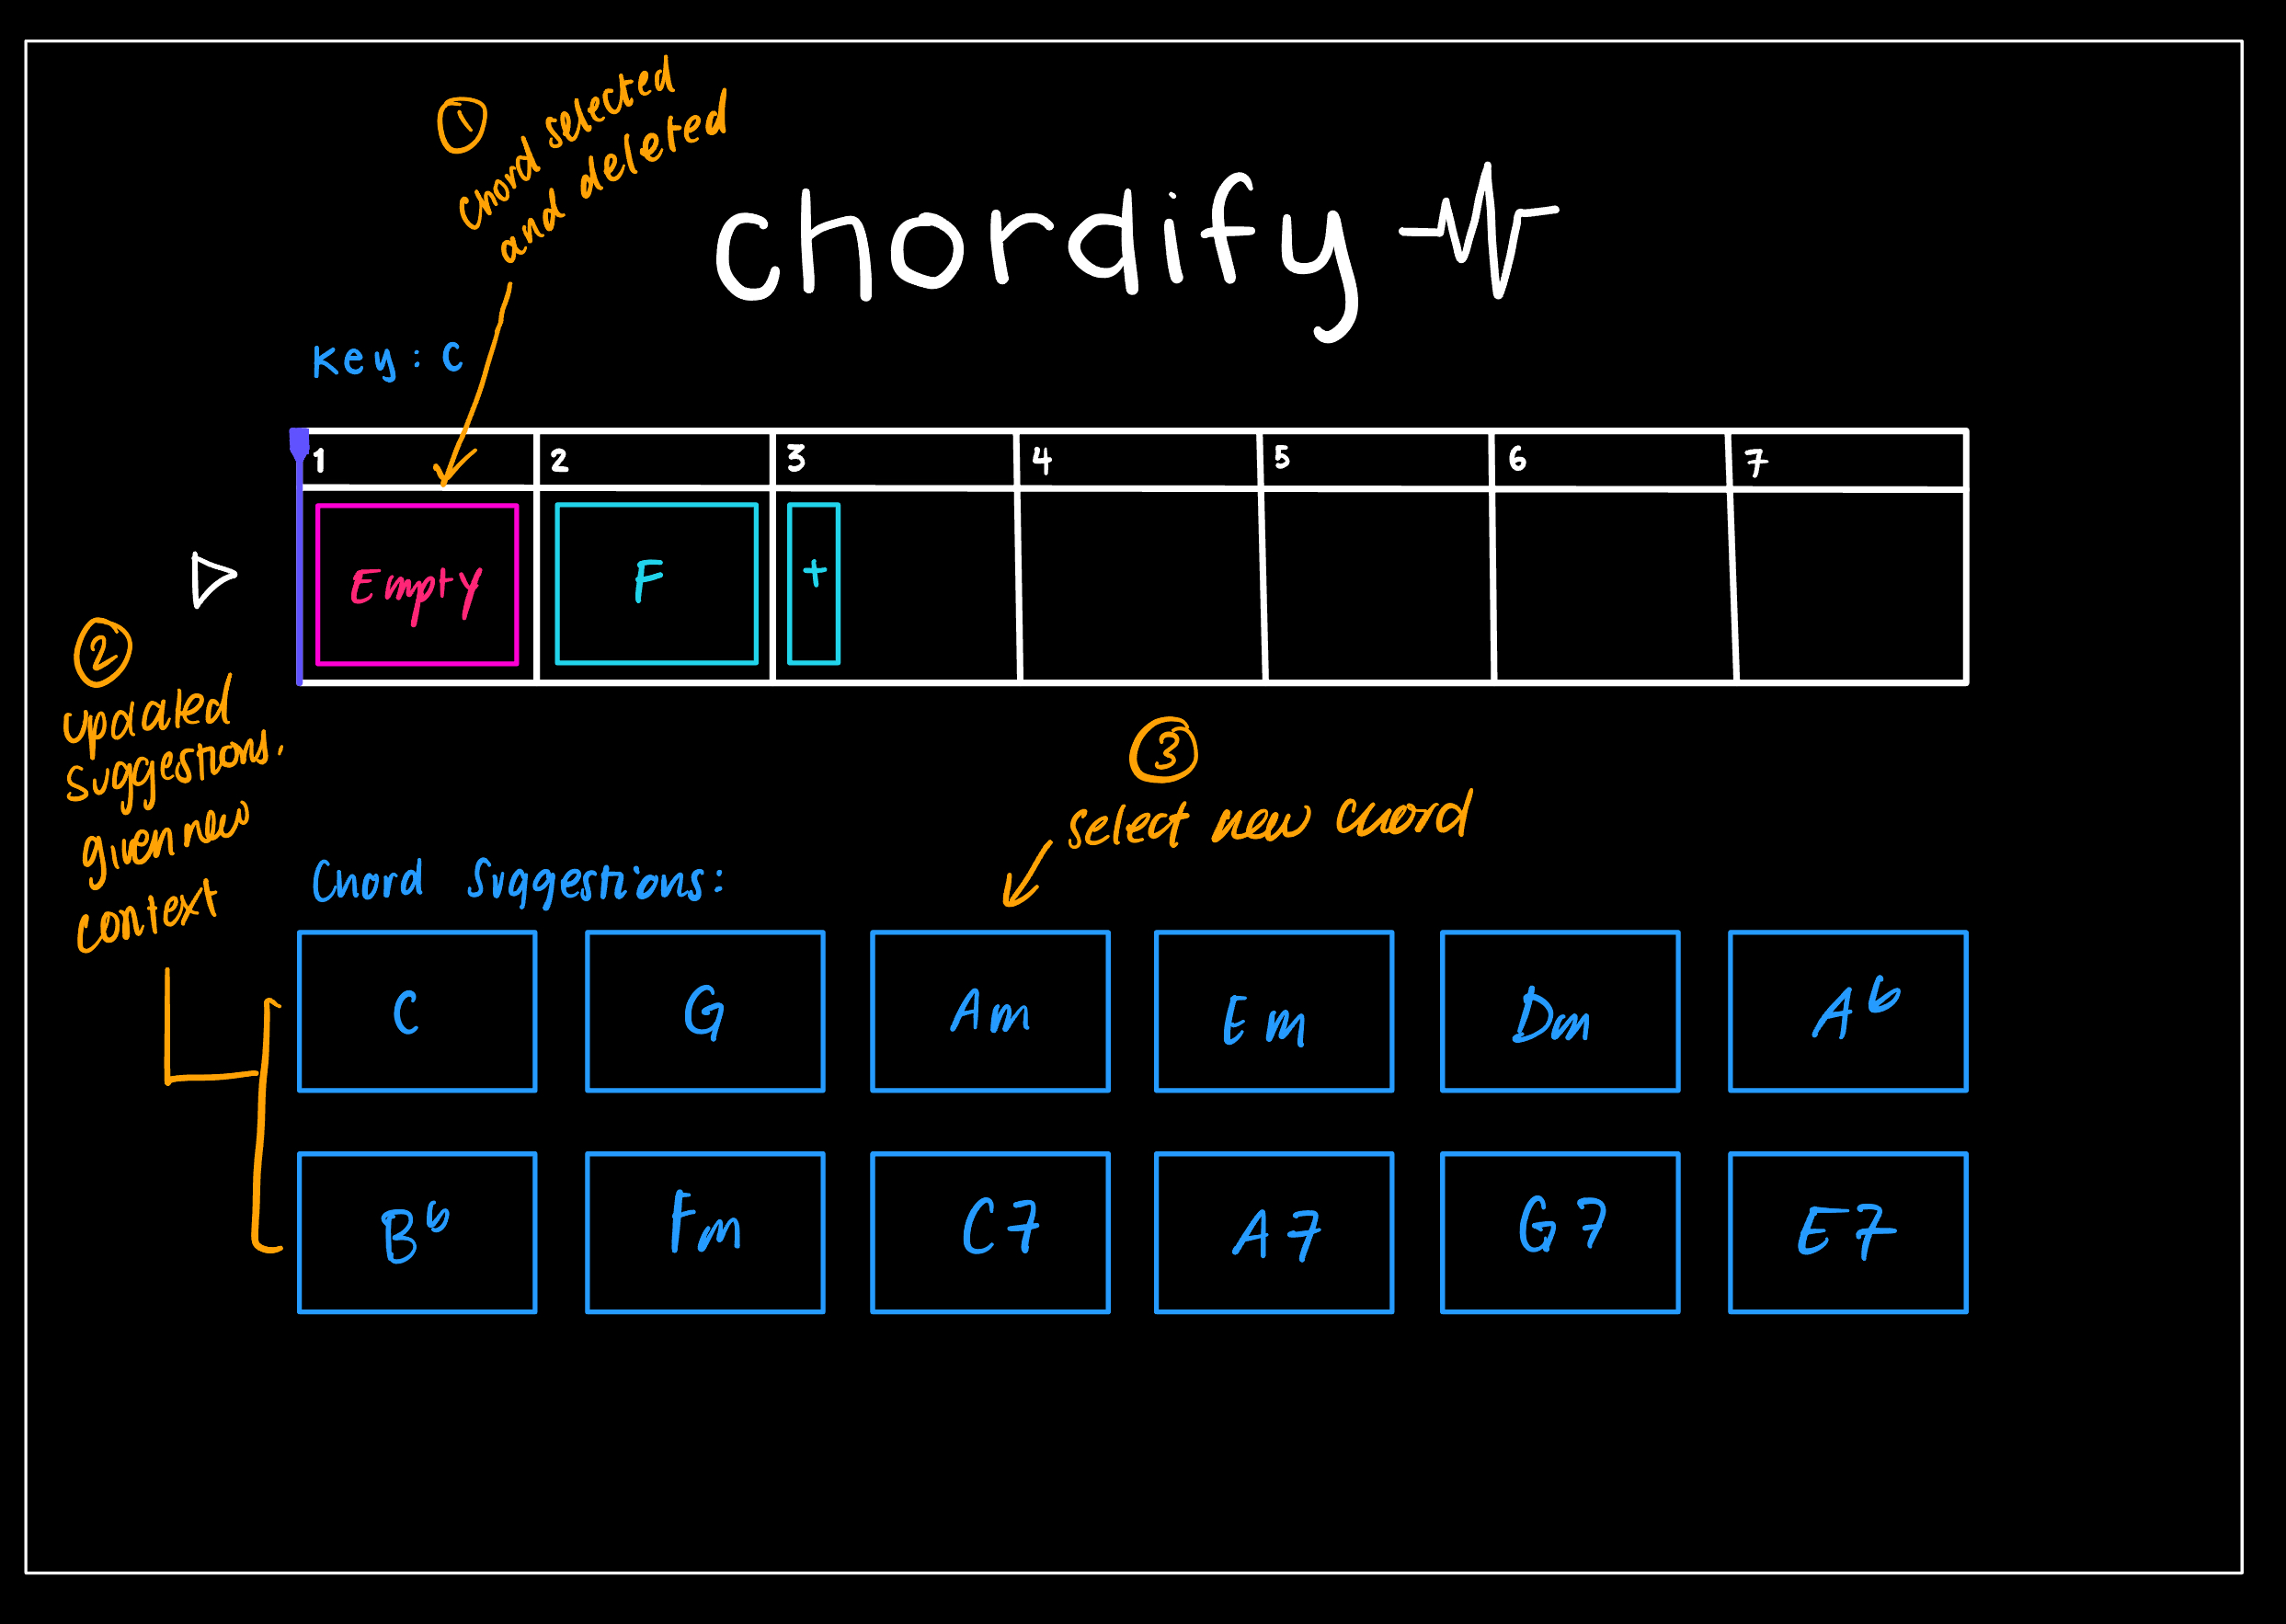 ①
chord selected
and deleted
chordify
Key: C
1 2 3 4 5 6 7
Empty F +
②
updated
suggestions.
given new
context
③
select new chord
Chord Suggestions:
C G Am Em Dm A♭
B♭ Fm C7 A7 G7 E7